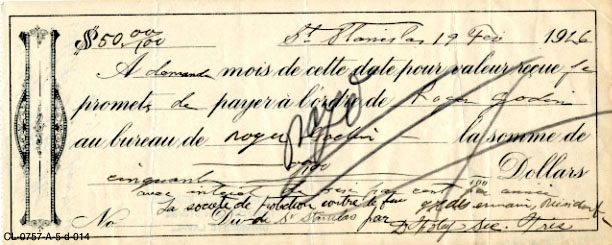 $50.00/100 St Stanislas 19 Fev 1926
A demande mois de cette date pour valeur reçue je
promets de payer à l'ordre de Roger Godin
au bureau de Roger Godin la somme de
payé
cinquante 00/100 Dollars
avec intérêt par cent par année
La société de protection contre le feu
No Du de St Stanislas par Sec. Tres
CL-0757-A-5-d-014